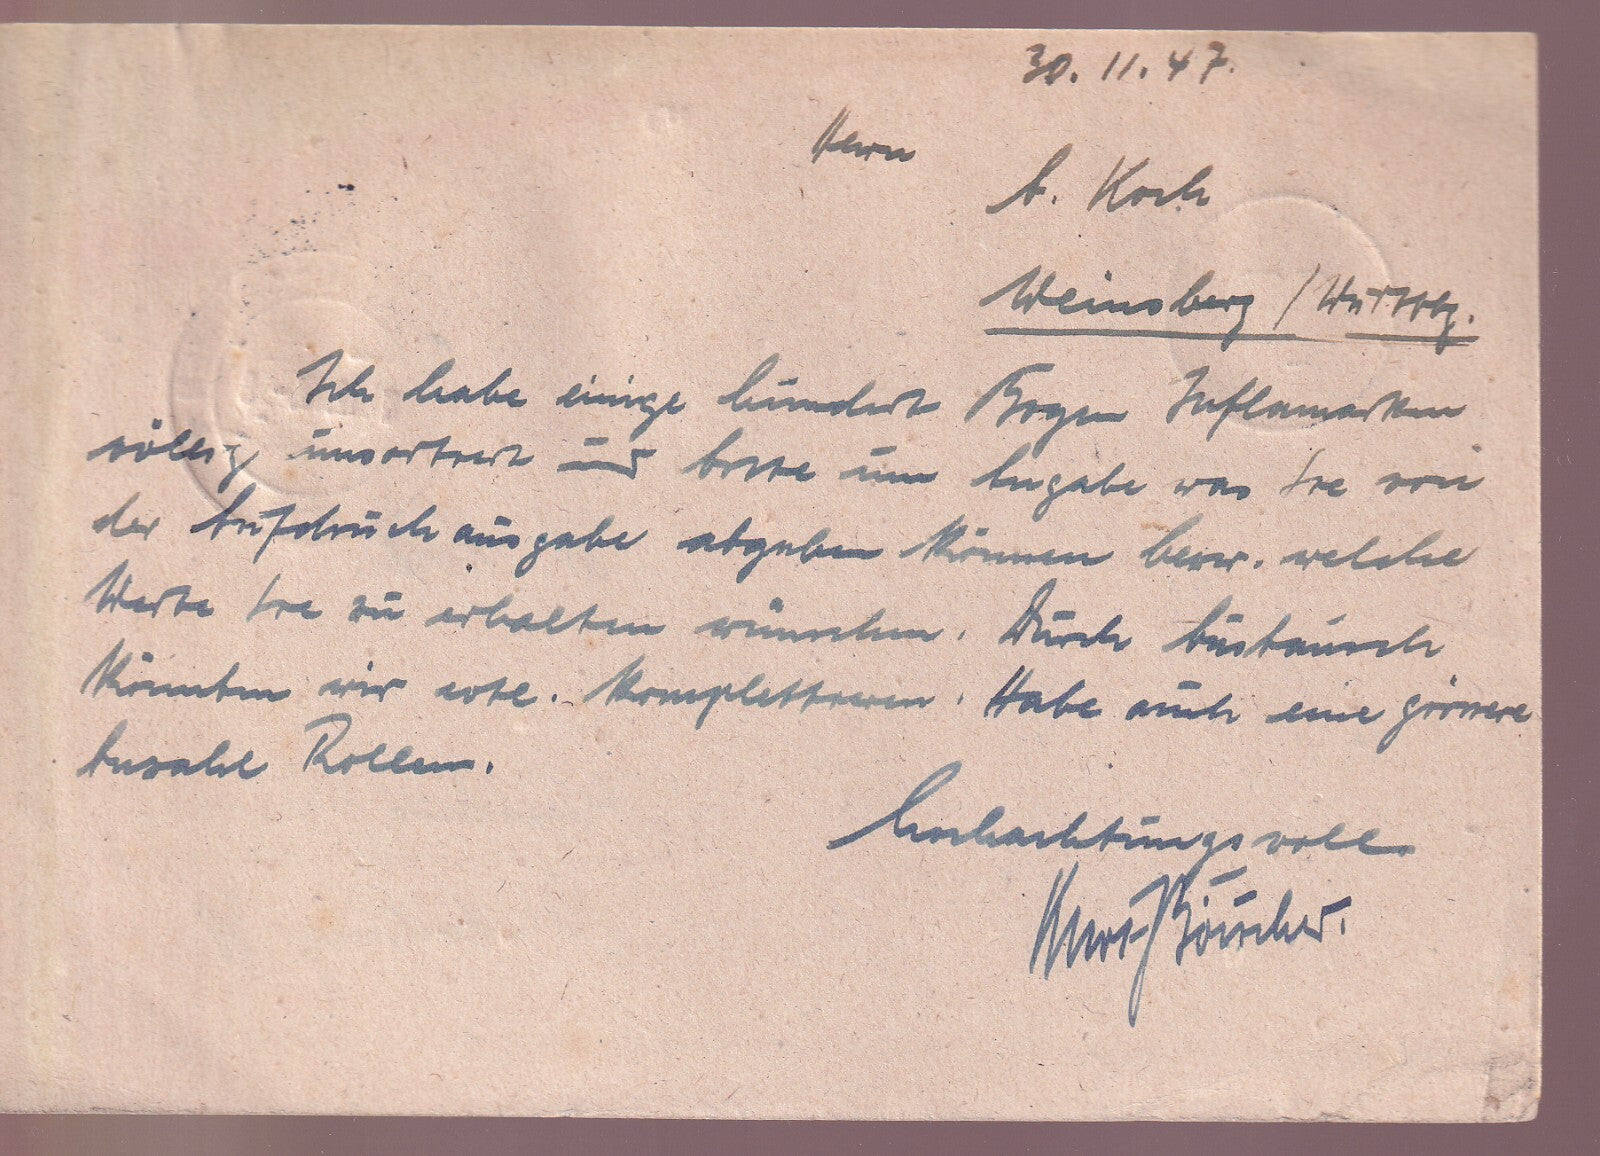 30.11.47.
Herrn
A. Koch
Weinsberg / Württbg.
Ich habe einige hundert Bogen Inflamarken
völlig unsortiert und bitte um Angabe was Sie von
der Aufdruckausgabe abgeben können bezw. welche
Werte Sie zu erhalten wünschen. Durch Austausch
könnten wir evtl. komplettieren. Habe auch eine grössere
Anzahl Rollen.
Hochachtungsvoll
Kurt